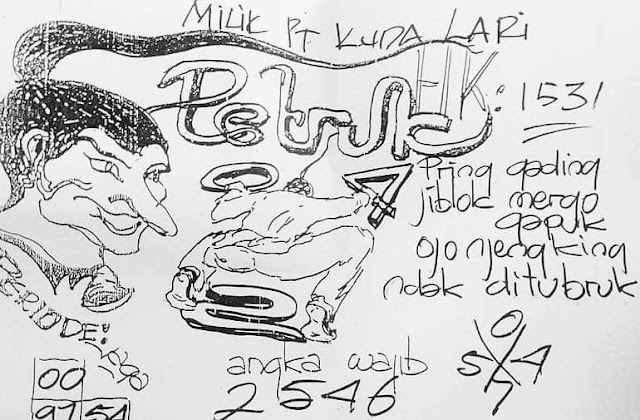 MILIK PT KUDA LARI
Petruk
HK: 1531
4
Pring gading
jiblok mergo
gapuk
ojo njengking
ndak ditubruk
PERIODE:
00
97 54
angka wajib
2546
0
5 X 4
7